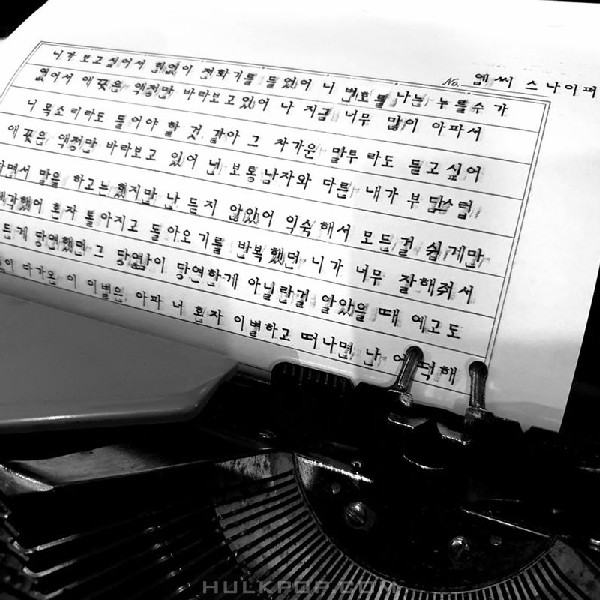 No. 엠씨 스나이퍼
니가 보고싶어서 힘없이 전화기를 들었어 니 번호를 나는 누를수가
없어서 애꿎은 액정만 바라보고있어 나 지금 너무 많이 아파서
니 목소리라도 들어야 할 것 같아 그 차가운 말투라도 듣고 싶어
애꿎은 액정만 바라보고 있어 넌 보통남자와 다른 내가 부담스럽
다면서 말을 하고는했지만 난 듣지 않았어 익숙해서 모든걸 쉽게만
생각했어 혼자 돌아지고 돌아오기를 반복했면 니가 너무 잘해줘서
든게 당연했면 그 당연함이 당연한게 아닐란걸 알았을 때 예고도
이 다가온 이 이별은 아파 너 혼자 이별하고 떠나면 난 어떡해
HULKPOP.COM